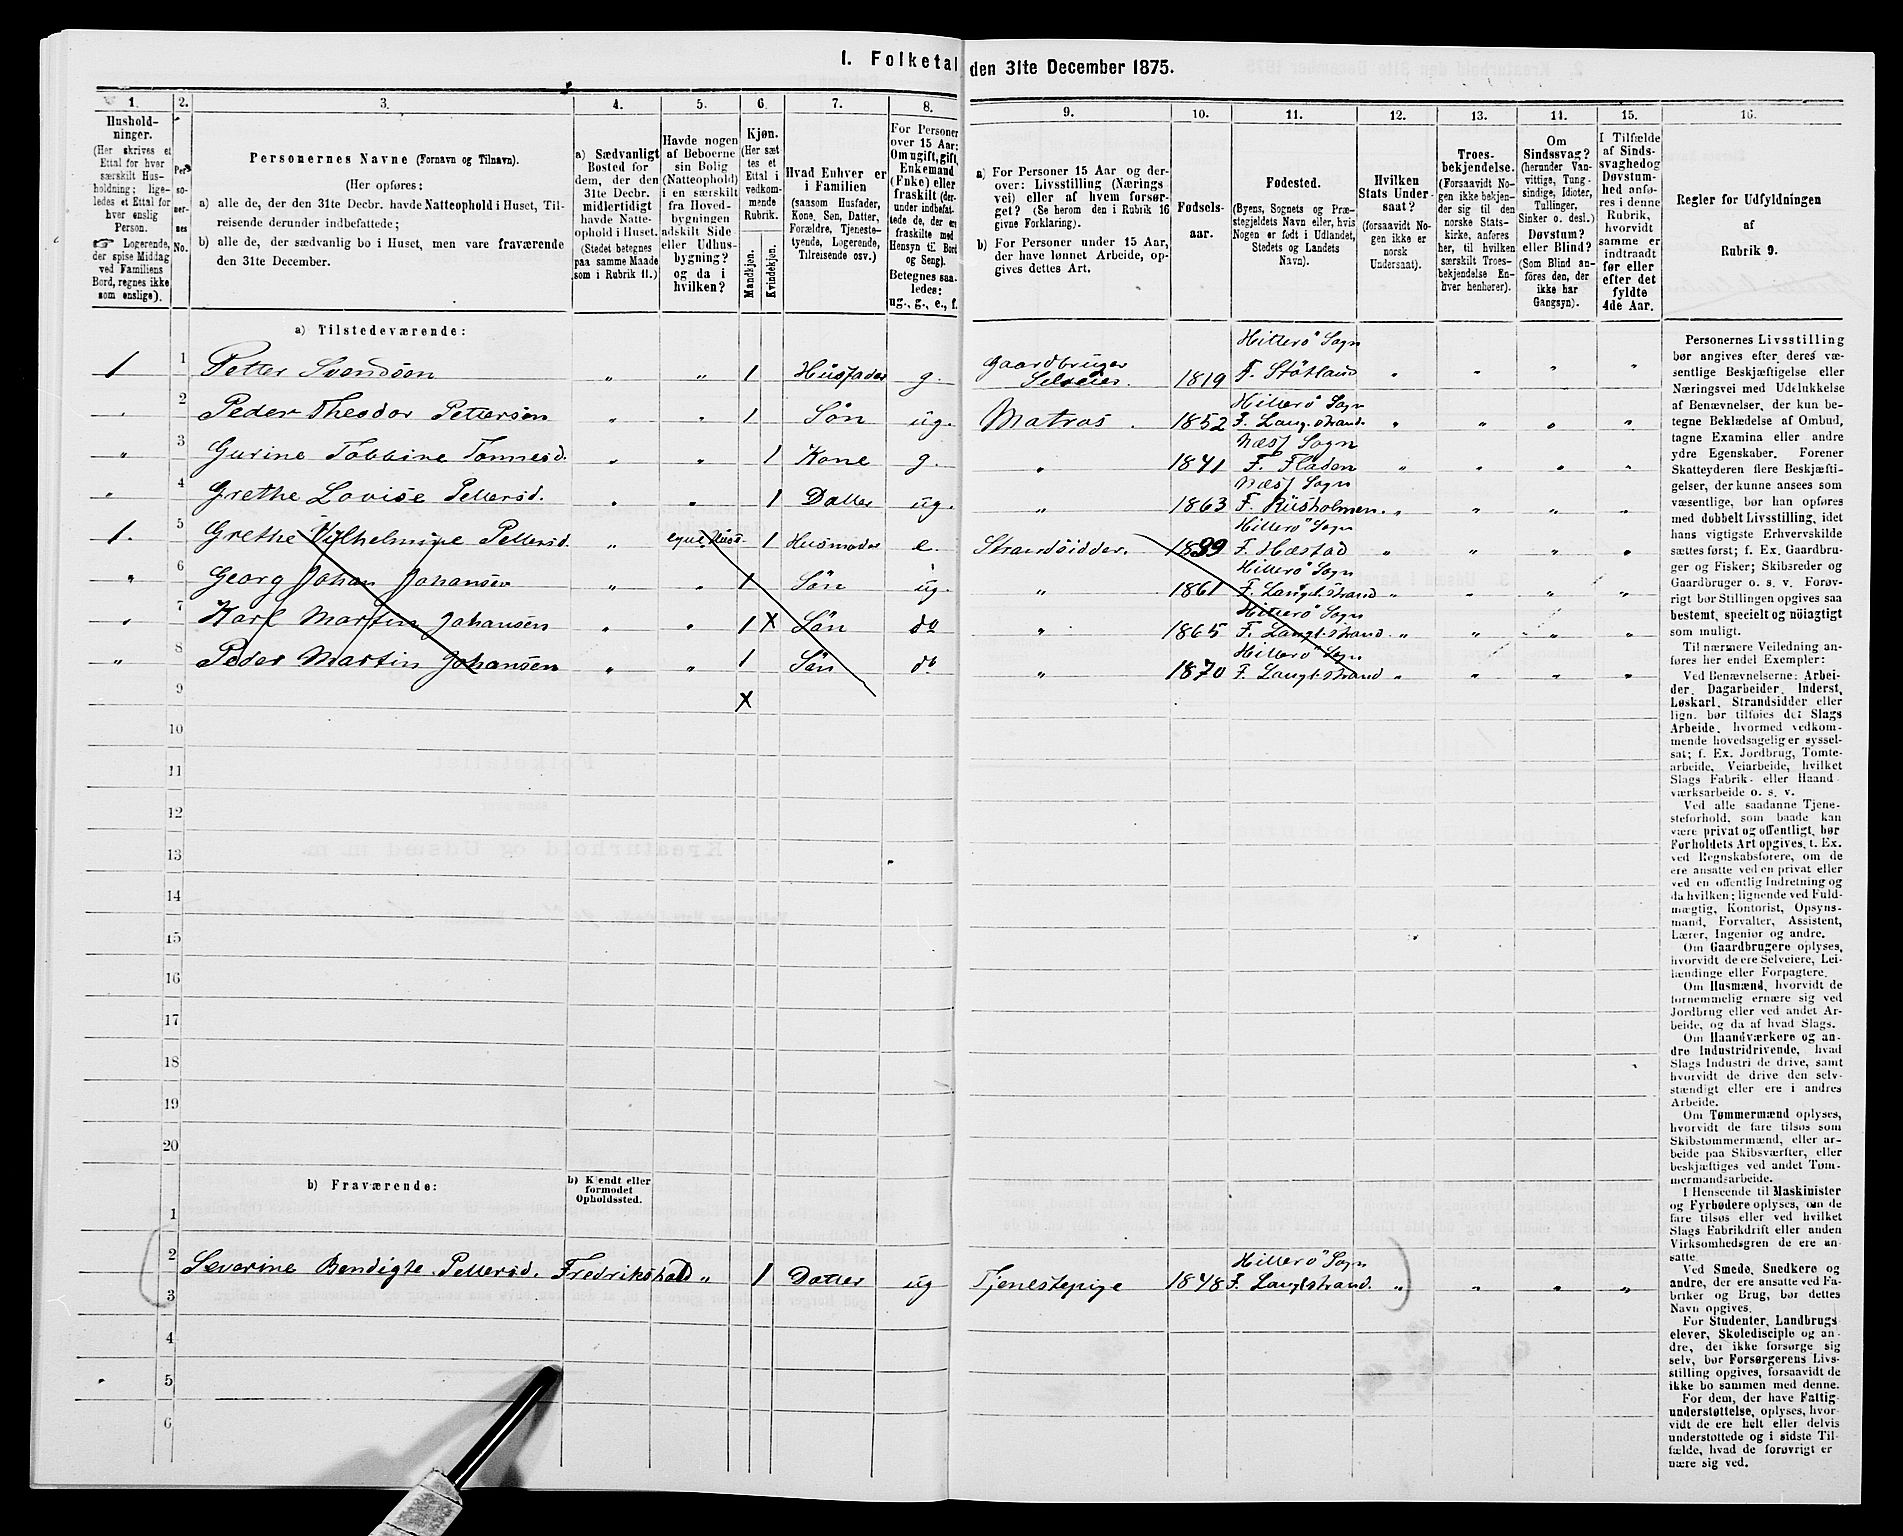 I. Folketal den 31te December 1875.
1. 2. 3. 4. 5. 6. 7. 8. 9. 10. 11. 12. 13. 14. 15. 16.
Hushold-
ninger.
(Her skrives et
Ettal for hver
særskilt Hus-
holdning; lige-
ledes et Ettal for
hver enslig
Person.
☞ Logerende,
der spise Middag
ved Familiens
Bord, regnes ikke
som enslige).
Per-
so-
ner-
nes
No.
Personernes Navne (Fornavn og Tilnavn).
(Her opføres:
a) alle de, der den 31te Decbr. havde Natteophold i Huset, Til-
reisende derunder indbefattede;
b) alle de, der sædvanlig bo i Huset, men vare fraværende
den 31te December.
a) Sædvanligt
Bosted for
dem, der den
31te Decbr.
midlertidigt
havde Natte-
ophold i Huset.
(Stedet betegnes
paa samme Maade
som i Rubrik 11.)
Havde nogen
af Beboerne
sin Bolig
(Natteophold)
i en særskilt
fra Hoved-
bygningen
adskilt Side
eller Udhus-
bygning?
og da i
hvilken?
Kjøn.
(Her sæt-
tes et
Ettal i
vedkom-
mende
Rubrik.
Mandkjøn.
Kvindekjøn.
Hvad Enhver er
i Familien
(saasom Husfader,
Kone, Søn, Datter,
Forældre, Tjeneste-
tyende, Logerende,
Tilreisende osv.)
For Personer
over 15 Aar:
Om ugift, gift,
Enkemand
(Enke) eller
fraskilt (der-
under indbefat-
tede de, der ere
fraskilte med
Hensyn til Bord
og Seng).
Betegnes saa-
ledes:
ug., g., e., f.
a) For Personer 15 Aar og der-
over: Livsstilling (Nærings-
vei) eller af hvem forsør-
get? (Se herom den i Rubrik 16
givne Forklaring).
b) For Personer under 15 Aar,
der have lønnet Arbeide, op-
gives dettes Art.
Fødsels-
aar.
Fødested.
(Byens, Sognets og Præ-
stegjeldets Navn eller, hvis
Nogen er født i Udlandet,
Stedets og Landets
Navn).
Hvilken
Stats Under-
saat?
(forsaavidt No-
gen ikke er
norsk
Undersaat).
Troes-
bekjendelse.
(Forsaavidt No-
gen ikke bekjen-
der sig til den
norske Stats-
kirke, anføres
her, til hvilken
særskilt Troes-
bekjendelse En-
hver henhører).
Om
Sindssvag?
(herunder Van-
vittige, Tung-
sindige, Idioter,
Tullinger,
Sinker o. desl.)
Døvstum?
eller Blind?
(Som Blind an-
føres den, der
ikke har
Gangsyn).
I Tilfælde
af Sinds-
svaghed og
Døvstum-
hed anfø-
res i denne
Rubrik,
hvorvidt
samme er
indtraadt
før eller
efter det
fyldte
4de Aar.
Regler for Udfyldningen
af
Rubrik 9.
a) Tilstedeværende:
1 1 Petter Svendsen „ „ 1 Husfader g. Gaardbruger Selveier. 1819 Hitterø Sogn F. Stötland „ „ „ „
„ 2 Peder Theodor Pettersen „ „ 1 Søn ug. Matros. 1852 Hitterø Sogn F. Langl.strand. „ „ „ „
„ 3 Gurine Tobbine Tonnesd. „ „ 1 Kone g. „ 1841 Næsf Sogn F. Fladen „ „ „ „
„ 4 Grethe Lovise Pettersd. „ „ 1 Datter ug. „ 1863 Næsf Sogn F. Riisholmen. „ „ „ „
1. 5 Grethe Vilhelmine Pettersd. „ eget Huus. 1 Husmoder e. Strandsidder. 1839 Hitterø Sogn F. Hæstad „ „ „ „
„ 6 Georg Johan Johansen „ „ 1 Søn ug. „ 1861 Hitterø Sogn F. Langl.strand „ „ „ „
„ 7 Karl Martin Johansen „ „ 1 X Søn do „ 1865 Hitterø Sogn F. Langl.strand. „ „ „ „
„ 8 Peder Martin Johansen „ „ 1 Søn do „ 1870 Hitterø Sogn F. Langl.strand „ „ „ „
9 X
10
11
12
13
14
15
16
17
18
19
20
b) Fraværende:
b) Kjendt eller
formodet
Opholdssted.
1
2 Severine Bendigte Pettersd. Fredrikshald „ 1 Datter ug Tjenestepige 1848 Hitterø Sogn F. Langl.strand. „ „ „ „
3
4
5
6
Personernes Livsstilling
bør angives efter deres væ-
sentlige Beskjæftigelse eller
Næringsvei med Udelukkelse
af Benævnelser, der kun be-
tegne Beklædelse af Ombud,
tagne Examina eller andre
ydre Egenskaber. Forener
Skatteyderen flere Beskjæfti-
gelser, der kunne ansees som
væsentlige, bør han opføres
med dobbelt Livsstilling, idet
hans vigtigste Erhvervskilde
sættes først; f. Ex. Gaardbru-
ger og Fisker; Skibsreder og
Gaardbruger o. s. v. Forøv-
rigt bør Stillingen opgives saa
bestemt, specielt og nöiagtigt
som muligt.
Til nærmere Veiledning an-
føres her endel Exempler:
Ved Benævnelserne: Arbei-
der, Dagarbeider, Inderst,
Løskarl, Strandsidder eller
lign. bør tilføies det Slags
Arbeide, hvormed vedkom-
mende hovedsagelig er syssel-
sat; f. Ex. Jordbrug, Tomte-
arbeide, Veiarbeide, hvilket
Slags Fabrik- eller Haand-
værksarbeide o. s. v.
Ved alle saadanne Tjene-
steforhold, som baade kan
være privat og offentligt, bør
Forholdets Art opgives, t. Ex.
ved Regnskabsførere, om de
ere ansatte ved en privat eller
ved en offentlig Indretning og
da hvilken; lignende ved Fuld-
mægtig, Kontorist, Opsyns-
mand, Forvalter, Assistent,
Lærer, Ingeniør og andre.
Om Gaardbrugere oplyses,
hvorvidt de ere Selveiere, Lei-
lændinge eller Forpagtere.
Om Husmænd, hvorvidt de
fornemmelig ernære sig ved
Jordbrug eller ved andet Ar-
beide, og da af hvad Slags.
Om Haandværkere og an-
dre Industridrivende, hvad
Slags Industri de drive, samt
hvorvidt de drive den selv-
stændigt eller ere i andres
Arbeide.
Om Tømmermænd oplyses,
hvorvidt de fare tilsøs som
Skibstømmermænd, eller ar-
beide paa Skibsværfter, eller
beskjæftiges ved andet Tøm-
mermandsarbeide.
I Henseende til Maskinister
og Fyrbødere oplyses, om de
fare tilsøs eller ved hvilket
Slags Fabrikdrift eller anden
Virksomhedsgren de ere an-
satte.
Ved Smede, Snedkere og
andre, der ere ansatte ved Fa-
briker og Brug, bør dettes
Navn opgives.
For Studenter, Landbrugs-
elever, Skoledisciple og an-
dre, der ikke forsørge sig
selv, bør Forsørgerens Livs-
stilling opgives, forsaavidt de
ikke bo sammen med denne.
For dem, der have Fattig-
understøttelse, oplyses, hvor-
vidt de ere helt eller delvis
understøttede og i sidste Til-
fælde, hvad de forøvrigt er-
nære sig ved.